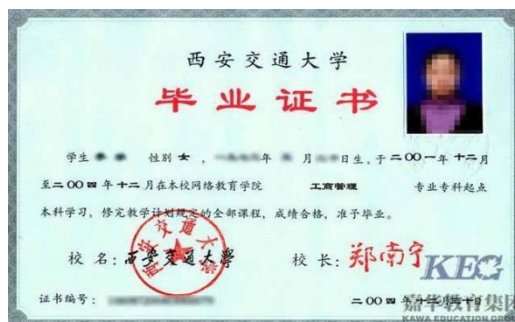 西安交通大学
毕业证书
学生 性别 女 , 年 月 日生,于二〇〇一年十二月
至二〇〇四年十二月在本校网络教育学院 工商管理 专业专科起点
本科学习,修完教学计划规定的全部课程,成绩合格,准予毕业。
校 名:西安交通大学 校 长:郑南宁
西安交通大学
证书编号: 二〇〇四年十二月三十日
KEG
嘉华教育集团
KAWA EDUCATION GROUP